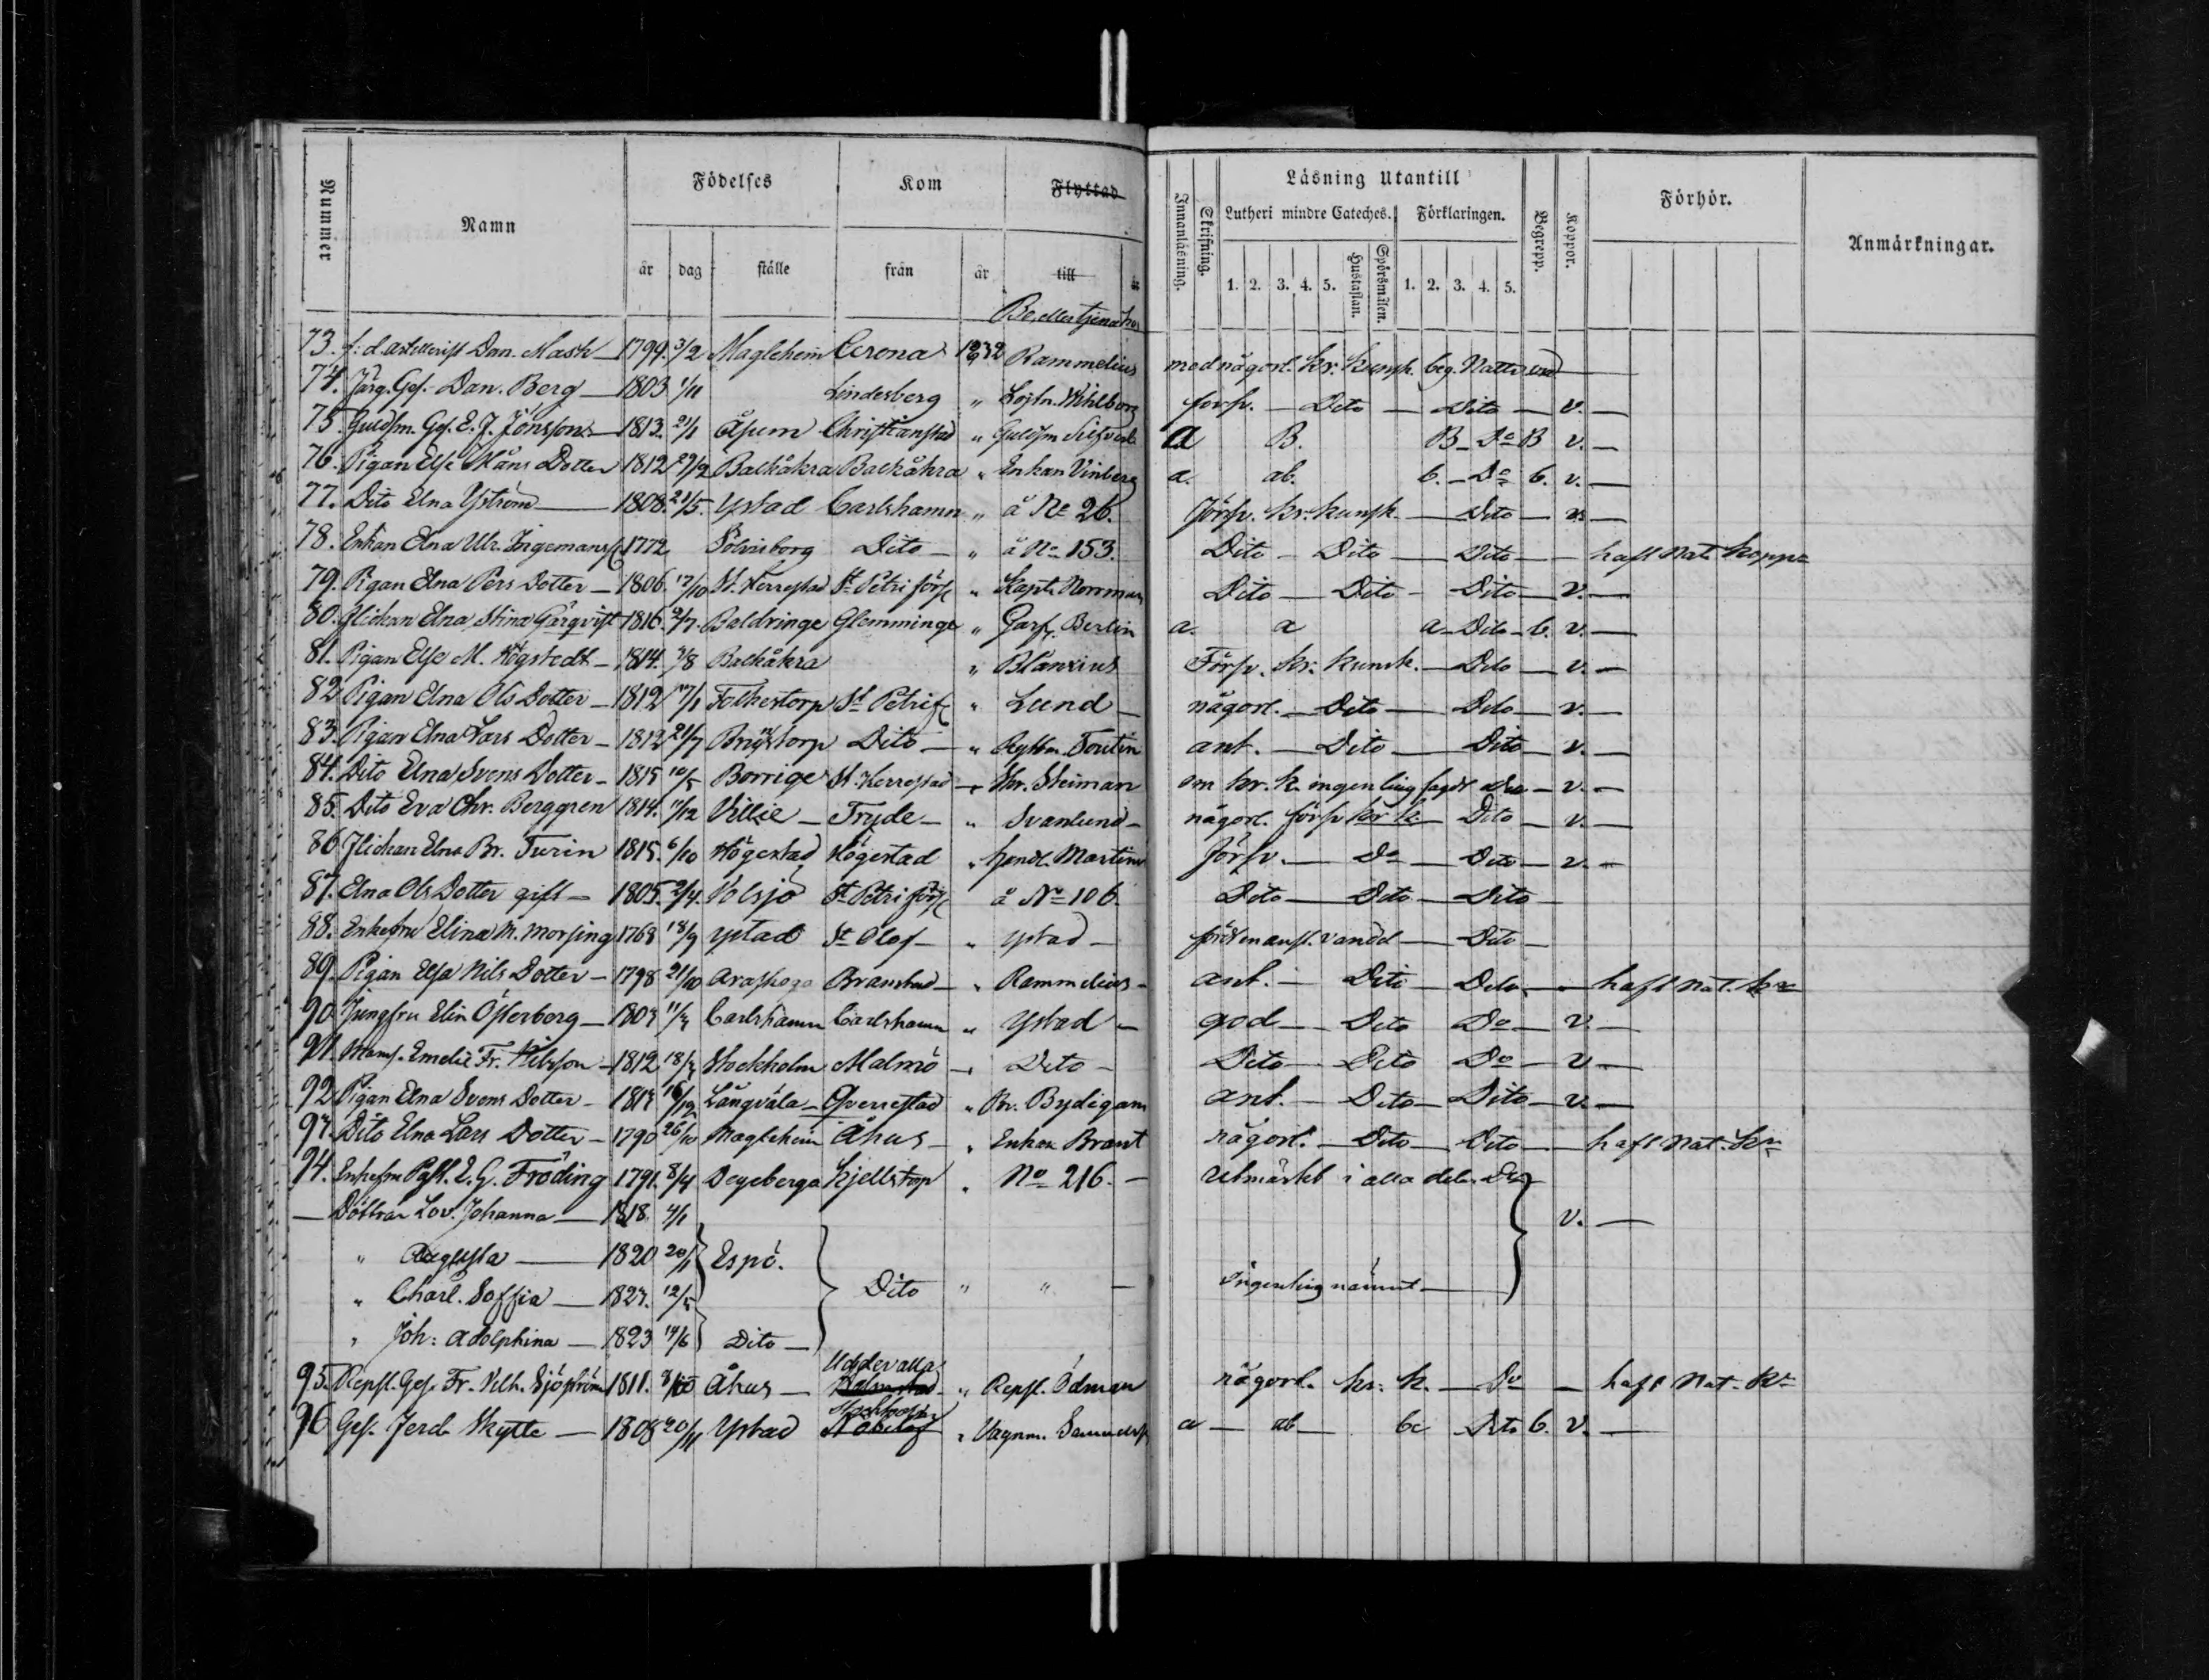 Nummer Namn Födelses Kom Flyttad Innanläsning. Skrifning. Läsning Utantill Begrepp. Koppor. Förhör. Anmärkningar.
Lutheri mindre Cateches. Förklaringen.
år dag ställe från år till 1. 2. 3. 4. 5. Hustaflan. Spörsmålen. 1. 2. 3. 4. 5.
73. f: d. Dan. Mask 1799. 3/2 Magleheim Cerona 1832 Rammelius med någorl. kr. kunsk. beg. Nattv.
74. Färg. Ges. Dan. Berg 1803 1/11 Lindesberg " Wihlborg försv. Dito Dito v.
75. Guldsm. Ges. E. J. Jönsson 1813. 21/1 Åsum Christianstad " Guldsm a B. B Do B v.
76. Pigan Else Måns Dotter 1812 29/2 Balkåkra Balkåkra " Enkan Vinberg a. ab. b. Do b. v.
77. Dito Elna Yström 1808. 21/5. Ystad Carlshamn " å No 26. Försv. kr: kunsk. Dito v.
78. Enkan Elna Ulr. Ingemansf 1772 Sölvisborg Dito " å No 153. Dito Dito Dito haft nat. koppr
79. Pigan Elna Pers Dotter 1806. 17/10 St. Herrestad St Petri förs " Kapt. Norrman Dito Dito Dito v.
80. Flickan Elna Stina Gärqvist 1816. 2/7. Baldringe Glemminge " Garf. Berlin a. a a Dito b. v.
81. Pigan Else M. Högstedt 1814. 3/8 Balkåkra " Blanxius Försv. kr: kunsk. Dito v.
82 Pigan Elna Ols Dotter 1812 17/1 Folkestorp St Petri f " Lund någorl. Dito Dito v.
83. Pigan Elna Lars Dotter 1812 21/7 Dito " Ryttm. Toutin ant. Dito Dito v.
84. Dito Elna Svens Dotter 1815 10/5 Borrige St. Herrestad " Skr. Steiman om kr. k. ingenting sagdt v.
85. Dito Eva Chr. Berggren 1814. 11/12 Villie Tryde " Svanlund någorl. försv kr k. Dito v.
86 Flickan Elna Br. Turin 1815. 6/10 Högestad Högestad " Handl. Martins Försv. Do Dito v.
87. Elna Ols Dotter gift 1805. 2/4. Volsjö St Petri förs å No 106. Dito Dito Dito
88. Enkefru Elina M. Morsing 1768 18/9 Ystad St Olof " Ystad Dito
89. Pigan Elsa Nils Dotter 1798 21/10 Branstad " Rammelius ant. Dito Dito haft nat. kr
90 Jungfru Elin Österberg 1807 11/4 Carlshamn Carlshamn " Ystad god Dito Do v.
91. Mams. Emelie Fr. Nilsson 1812 18/4 Stockholm Malmö " Dito Dito Dito Do v
92 Pigan Elna Svens Dotter 1817 16/12 Långväla Qverrestad " Br. Bydigam ant. Dito Dito v.
93. Dito Elna Lars Dotter 1790 26/10 Magleheim Åhus " Enkan Brant någorl. Dito Dito haft nat. kr
94. Enkefru E. G. Fröding 1791. 8/4 Degeberga Kjellstorp " No 216. utmärkt i alla delar
Döttrar Lov. Johanna 1818 4/1 v.
" Augusta 1820 20/1 Espö.
" Charl. Soffia 1827. 12/5 Dito " " Ingenting nämnt
" Joh: Adolphina 1823 14/6 Dito
Uddevalla
95. Repsl. Ges. Fr. Vilh. Sjöström 1811. Åhus " Repsl. Ödman någorl. kr: k. Do haft nat. kr
96 Ges. Ferd. Skytte 1808 20/11 Ystad " Vagnm. a ab bc Dito b. v.